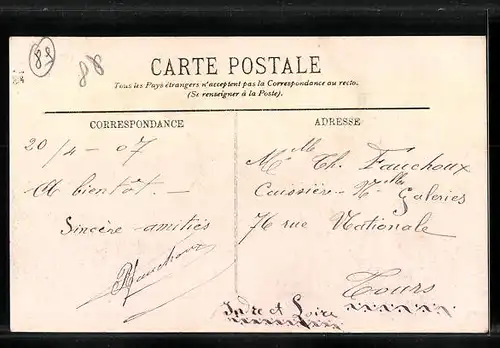 88
88
CARTE POSTALE
Tous les Pays étrangers n'acceptent pas la Correspondance au recto.
(Se renseigner à la Poste).
CORRESPONDANCE
ADRESSE
20/4-07
A bientôt. -
Sincère amitiés
Mlle Th. Fauchoux
Caissière - Nlles Galeries
76 rue Nationale
Tours
Indre et Loire